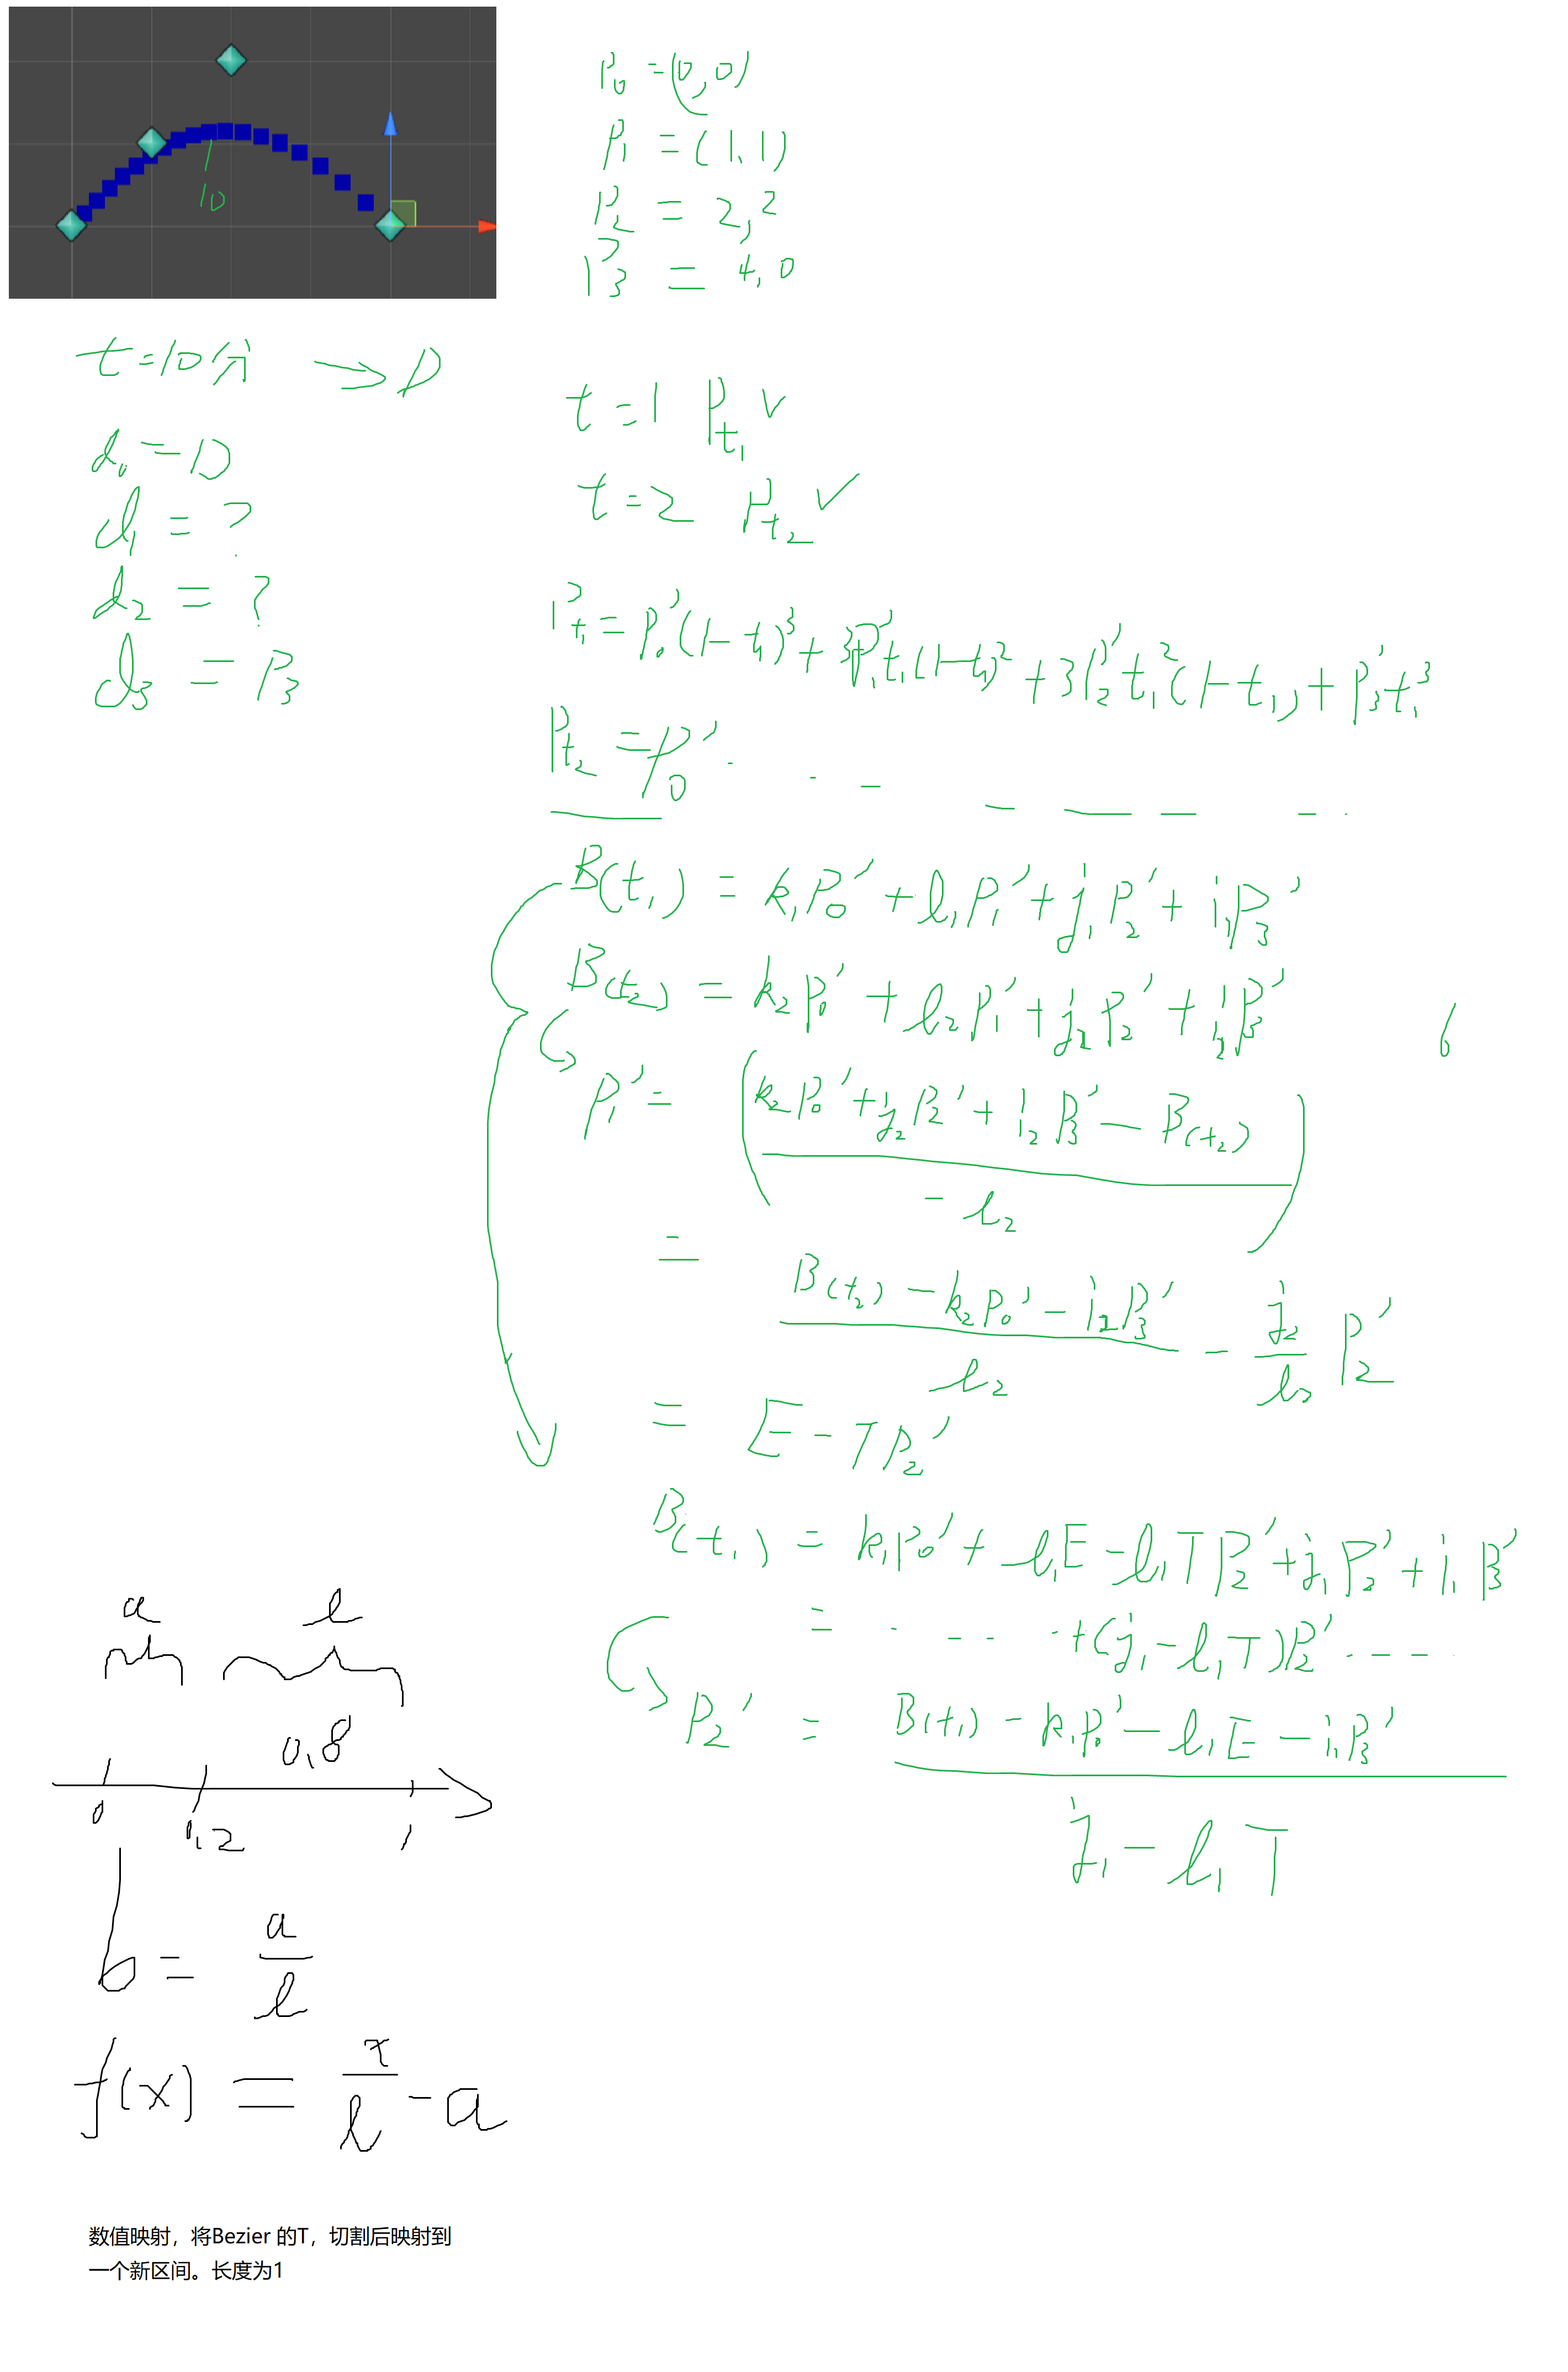 10
P₀ = (0,0)
P₁ = (1,1)
P₂ = 2,2
P₃ = 4,0
t=10分 → D
d₀ = D
d₁ = ?
d₂ = ?
d₃ = P₃
t=1 Pt₁ ✓
t=2 Pt₂ ✓
Pt₁ = P₀'(1-t₁)³ + 3P₁'t₁(1-t₁)² + 3P₂'t₁²(1-t₁) + P₃'t₁³
Pt₂ = P₀' · · – – — – – ·
B(t₁) = k₁P₀' + l₁P₁' + j₁P₂' + i₁P₃'
B(t₂) = k₂P₀' + l₂P₁' + j₂P₂' + i₂P₃'
6
P₁' = (k₂P₀' + j₂P₂' + i₂P₃' - B(t₂) / -l₂)
= B(t₂) - k₂P₀' - i₂P₃' / l₂ - j₂ / l₂ P₂'
= E - TP₂'
B(t₁) = k₁P₀' + l₁E - l₁TP₂' + j₁P₂' + i₁P₃'
= · – – · + (j₁ - l₁T)P₂' · – – –
P₂' = B(t₁) - k₁P₀' - l₁E - i₁P₃' / j₁ - l₁T
a l
0.8
0 0.2 1
b = a / l
f(x) = x / l - a
数值映射，将Bezier 的T，切割后映射到
一个新区间。长度为1